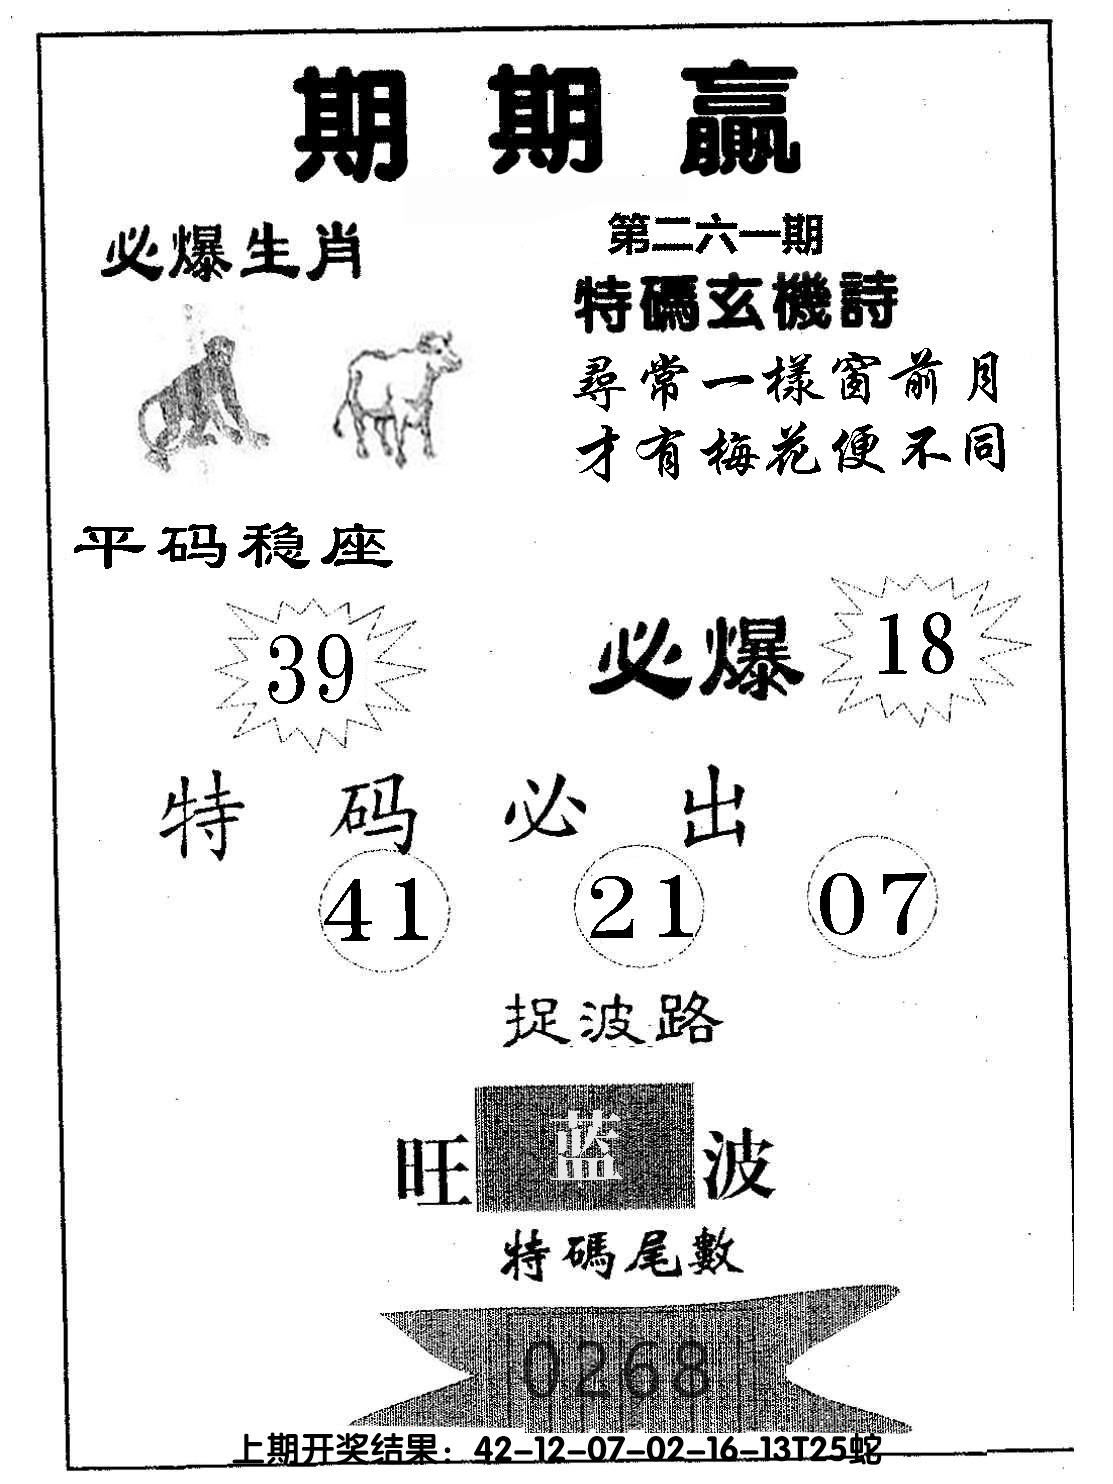 期期贏
必爆生肖
第二六一期
特碼玄機詩
尋常一樣窗前月
才有梅花便不同
平码稳座
39
必爆 18
特码必出
41 21 07
捉波路
旺 蓝 波
特碼尾數
0268
上期开奖结果：42-12-07-02-16-13T25蛇